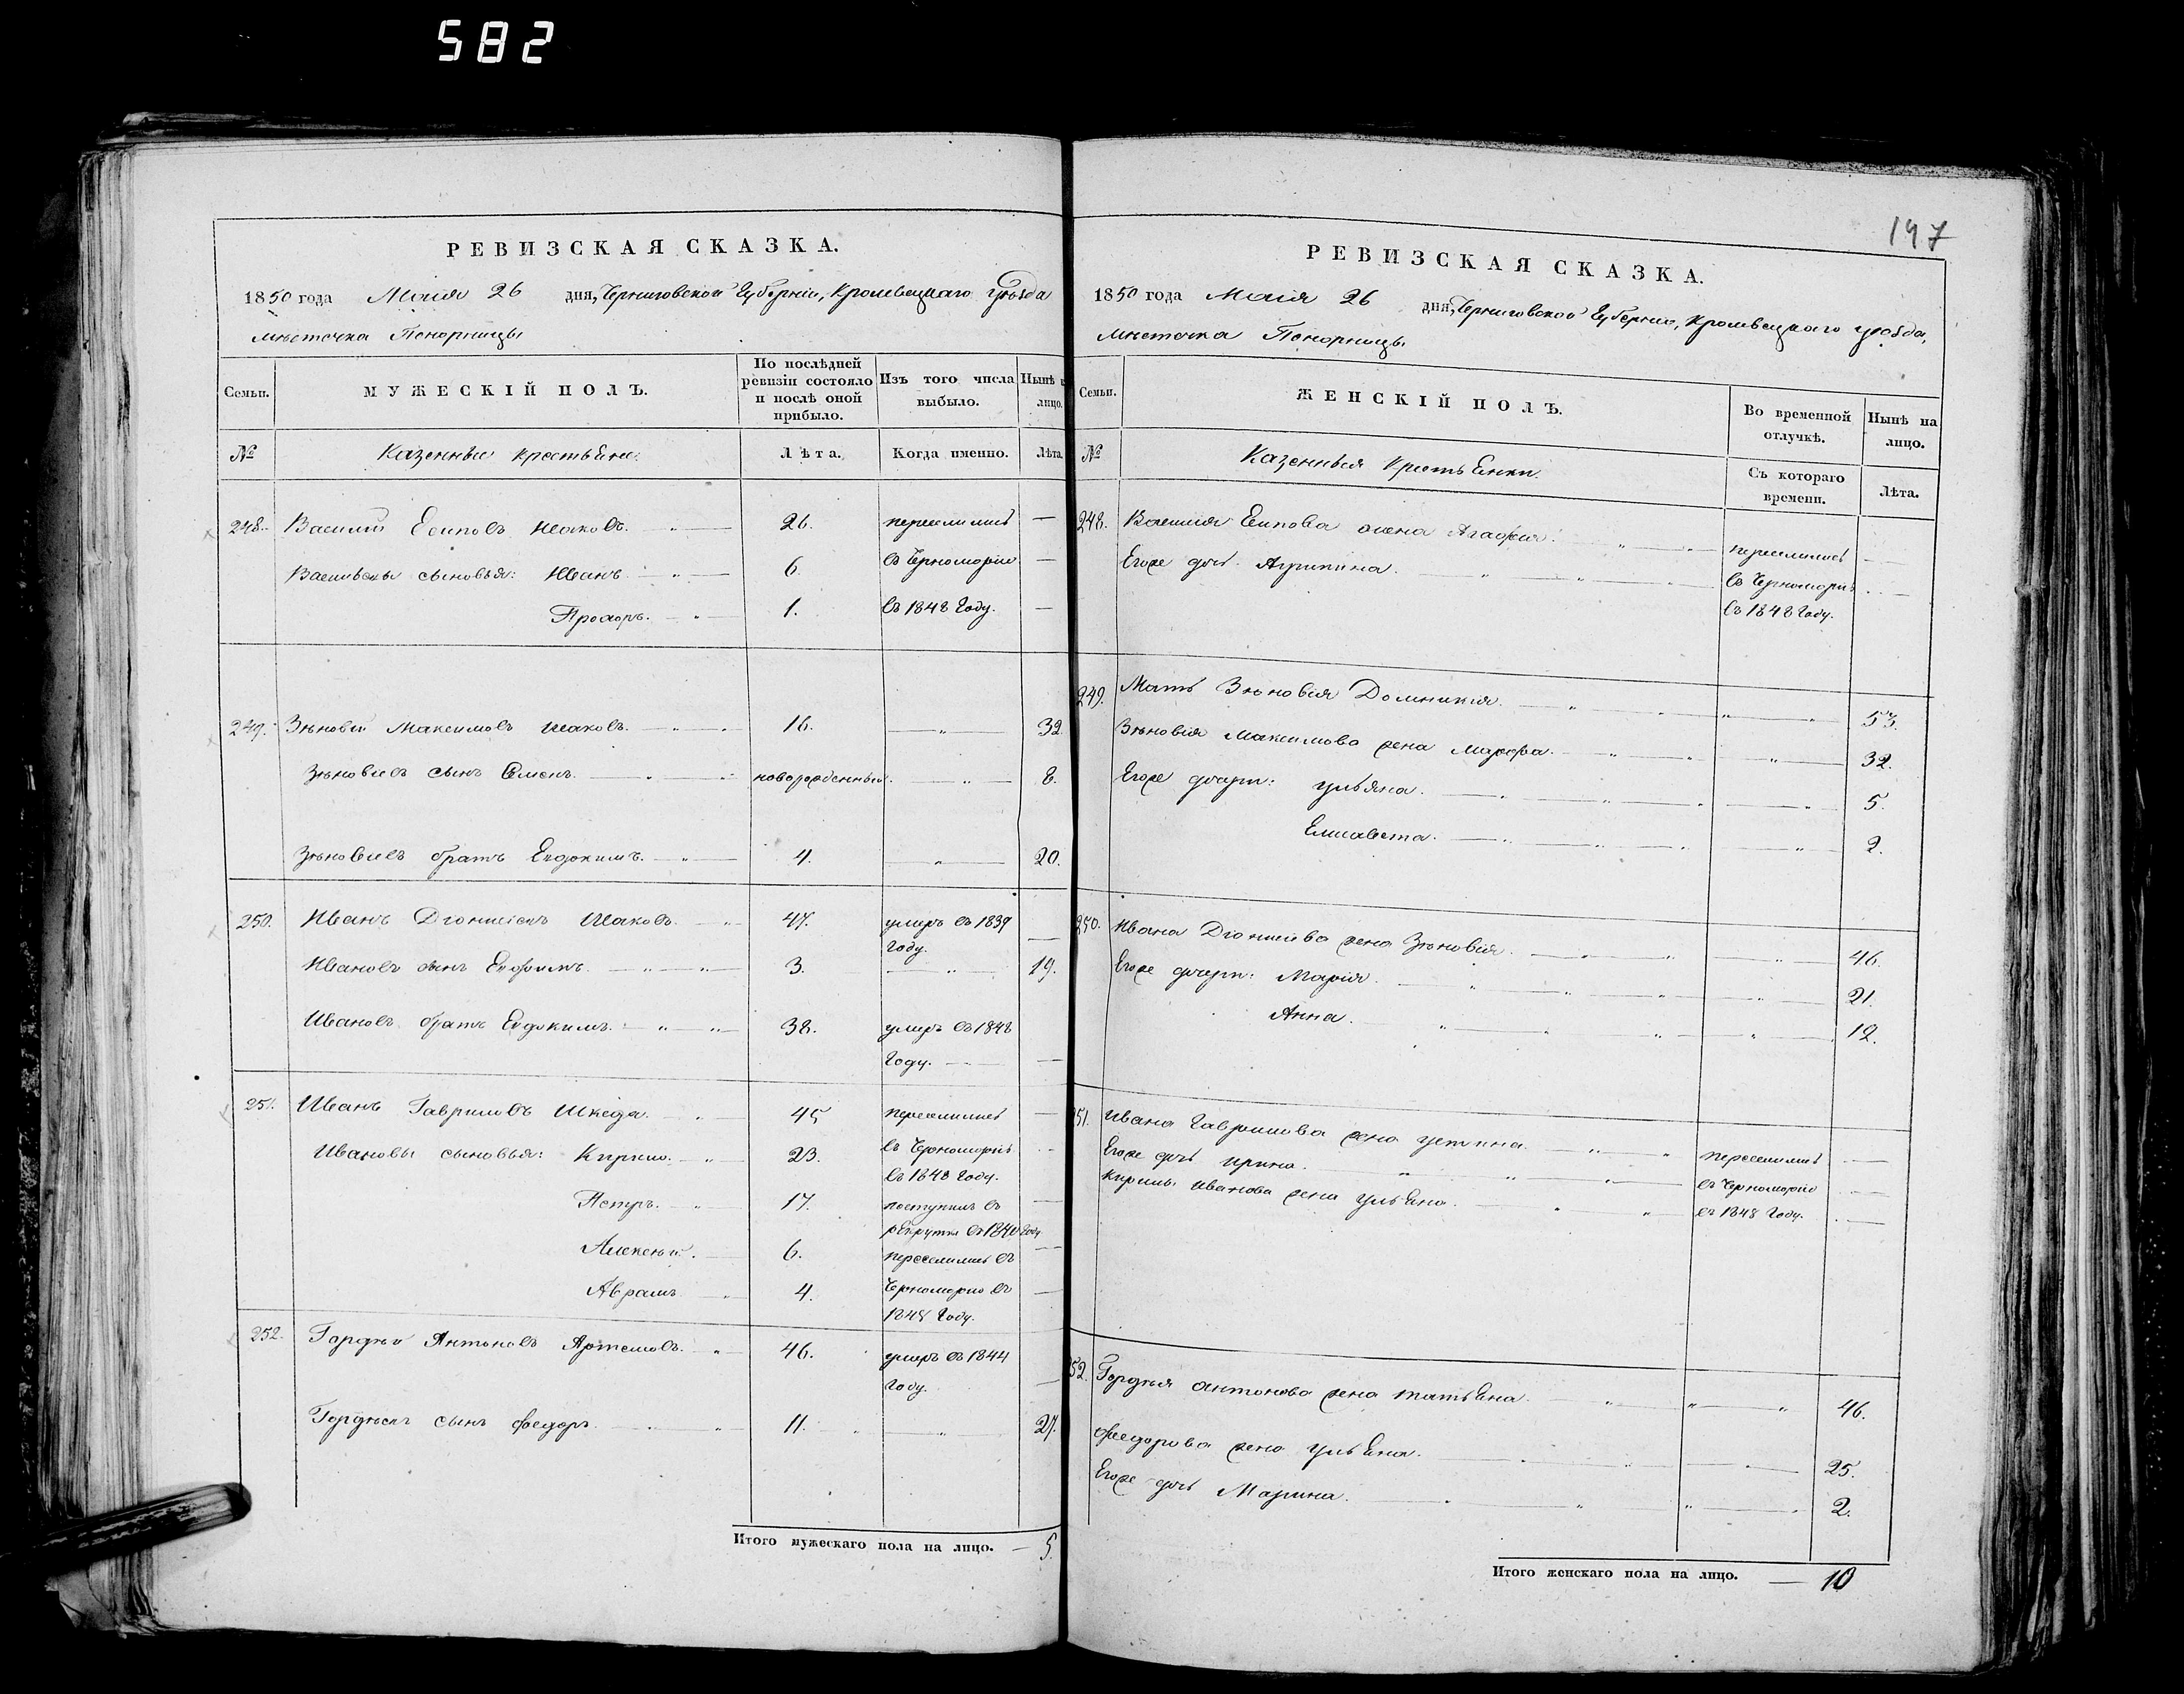 582
РЕВИЗСКАЯ СКАЗКА.
1850 года Маія 26 дня, Черниговской Губерніи, Кролевецкаго Уѣзда
мѣстечка Понорницы
Семьи. МУЖЕСКІЙ ПОЛЪ. По послѣдней ревизіи состояло и послѣ оной прибыло. Изъ того числа выбыло. Нынѣ н лицо.
№ Казенные крестьяне. Лѣта. Когда именно. Лѣта.
248. Василій Есиповъ Исаковъ. 26. переселились —
Васильевы сыновья: Иванъ. 6. въ Черноморію —
Прохоръ. 1. въ 1848 Году. —
249. Зѣновій Максимовъ Исаковъ. 16. — 32.
Зѣновіевъ сынъ Семенъ. новорожденный. — 8.
Зѣновіевъ братъ Евдокимъ. 4. — 20.
250. Иванъ Діонисіевъ Исаковъ. 47. умеръ въ 1839 Году. —
Ивановъ сынъ Евфимъ. 3. — 19.
Ивановъ братъ Евдокимъ. 38. умеръ въ 1848
Году. —
251. Иванъ Гавриловъ Шкеда. 45 переселились —
Ивановы сыновья: Кирило. 23. въ Черноморію
въ 1848 Году.
Петръ. 17. поступилъ въ —
рекруты въ 1840 Году
Алексѣй. 6. переселились въ —
Аврамъ 4. Черноморію въ —
1848 Году.
252. Гордѣй Антоновъ Артемовъ. 46. умеръ въ 1844
Году. —
Гордѣевъ сынъ Федоръ. 11. — 27.
Итого мужескаго пола на лицо. — 5.
147
РЕВИЗСКАЯ СКАЗКА.
1850 года Маія 26 дня, Черниговской Губерніи, Кролевецкаго уѣзда,
мѣстечка Понорницы
Семьи. ЖЕНСКІЙ ПОЛЪ. Во временной отлучкѣ. Нынѣ на лицо.
№ Казенныя Крестьянки. Съ котораго времени. Лѣта.
248. Василия Есипова жена Агафия. переселились —
Егоже дочь Агрипина. въ Черноморію —
въ 1848 Году.
249. Мать Зѣновія Домникія. 53.
Зѣновія Максимова жена Марфа. 32.
Егоже дочери: Ульяна. 5.
Елисавета. 2.
250. Ивана Діонисіева жена Зѣновія. 46
Егоже дочери: Марія. 21.
Анна. 12.
251. Ивана Гаврилова жена Устина. переселились —
Егоже дочь Ирина. въ Черноморію —
Кирилы Иванова жена Ульяна. въ 1848 Году. —
52. Гордѣя Антонова жена Татьяна. 46.
Федорова жена Ульяна. 25.
Егоже дочь Марина. 2.
Итого женскаго пола на лицо. — 10